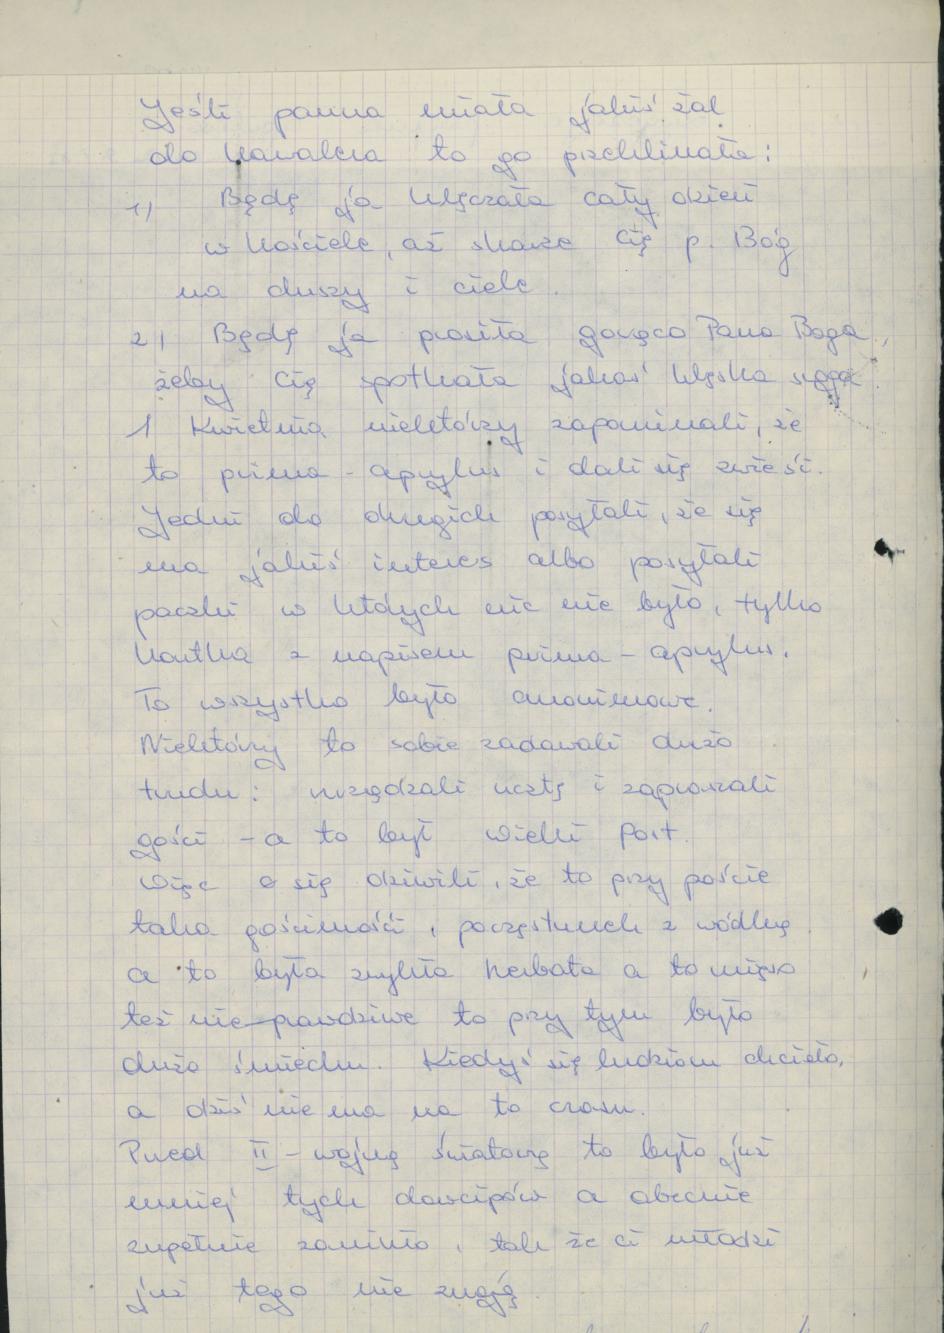 Jeśli panna miała jakiś żal
do kawalera to go przeklinała:
1) Będę ja klęczała cały dzień
w kościele, aż skarze Cię p. Bóg
na duszy i ciele.
2) Będę ja prosiła gorąco Pana Boga,
żeby Cię spotkała jakaś klęska sroga
1 Kwietnia niektórzy zapominali, że
to prima-aprylus i dali się zwieść.
Jedni do drugich posyłali, że się
ma jakiś interes albo posyłali
paczki w których nic nie było, tylko
kartka z napisem prima-aprylus.
To wszystko było anonimowe.
Niektórzy to sobie zadawali dużo
trudu: urządzali ucztę i zapraszali
gości - a to był wielki post.
Więc się dziwili, że to przy poście
taka gościność, poczęstunek z wódką
a to była zwykła herbata a to mięso
też nie prawdziwe to przy tym było
dużo śmiechu. Kiedyś się ludziom chciało,
a dziś nie ma na to czasu.
Przed II-wojną światową to było już
mniej tych dowcipów a obecnie
zupełnie zanikło, tak że ci młodzi
już tego nie znają